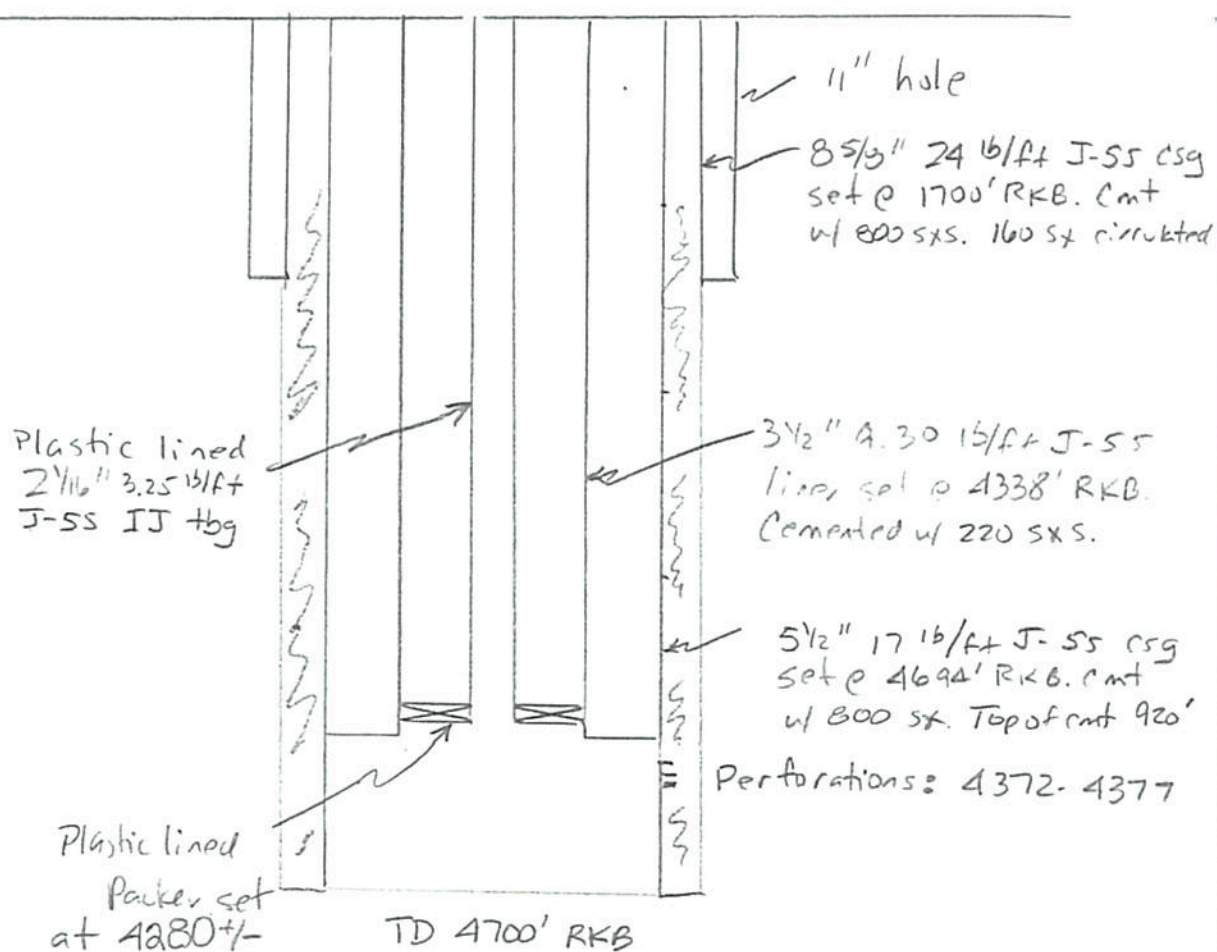 11" hole
8 5/8" 24 lb/ft J-55 csg
set @ 1700' RKB. Cmt
w/ 800 sxs. 160 sx circulated
Plastic lined
2 1/16" 3.25 lb/ft
J-55 IJ tbg
3 1/2" 9.30 lb/ft J-55
liner set @ 4338' RKB.
Cemented w/ 220 sxs.
5 1/2" 17 lb/ft J-55 csg
set @ 4694' RKB. Cmt
w/ 800 sx. Top of cmt 920'
Perforations: 4372-4377
Plastic lined
Packer set
at 4280+/-
TD 4700' RKB